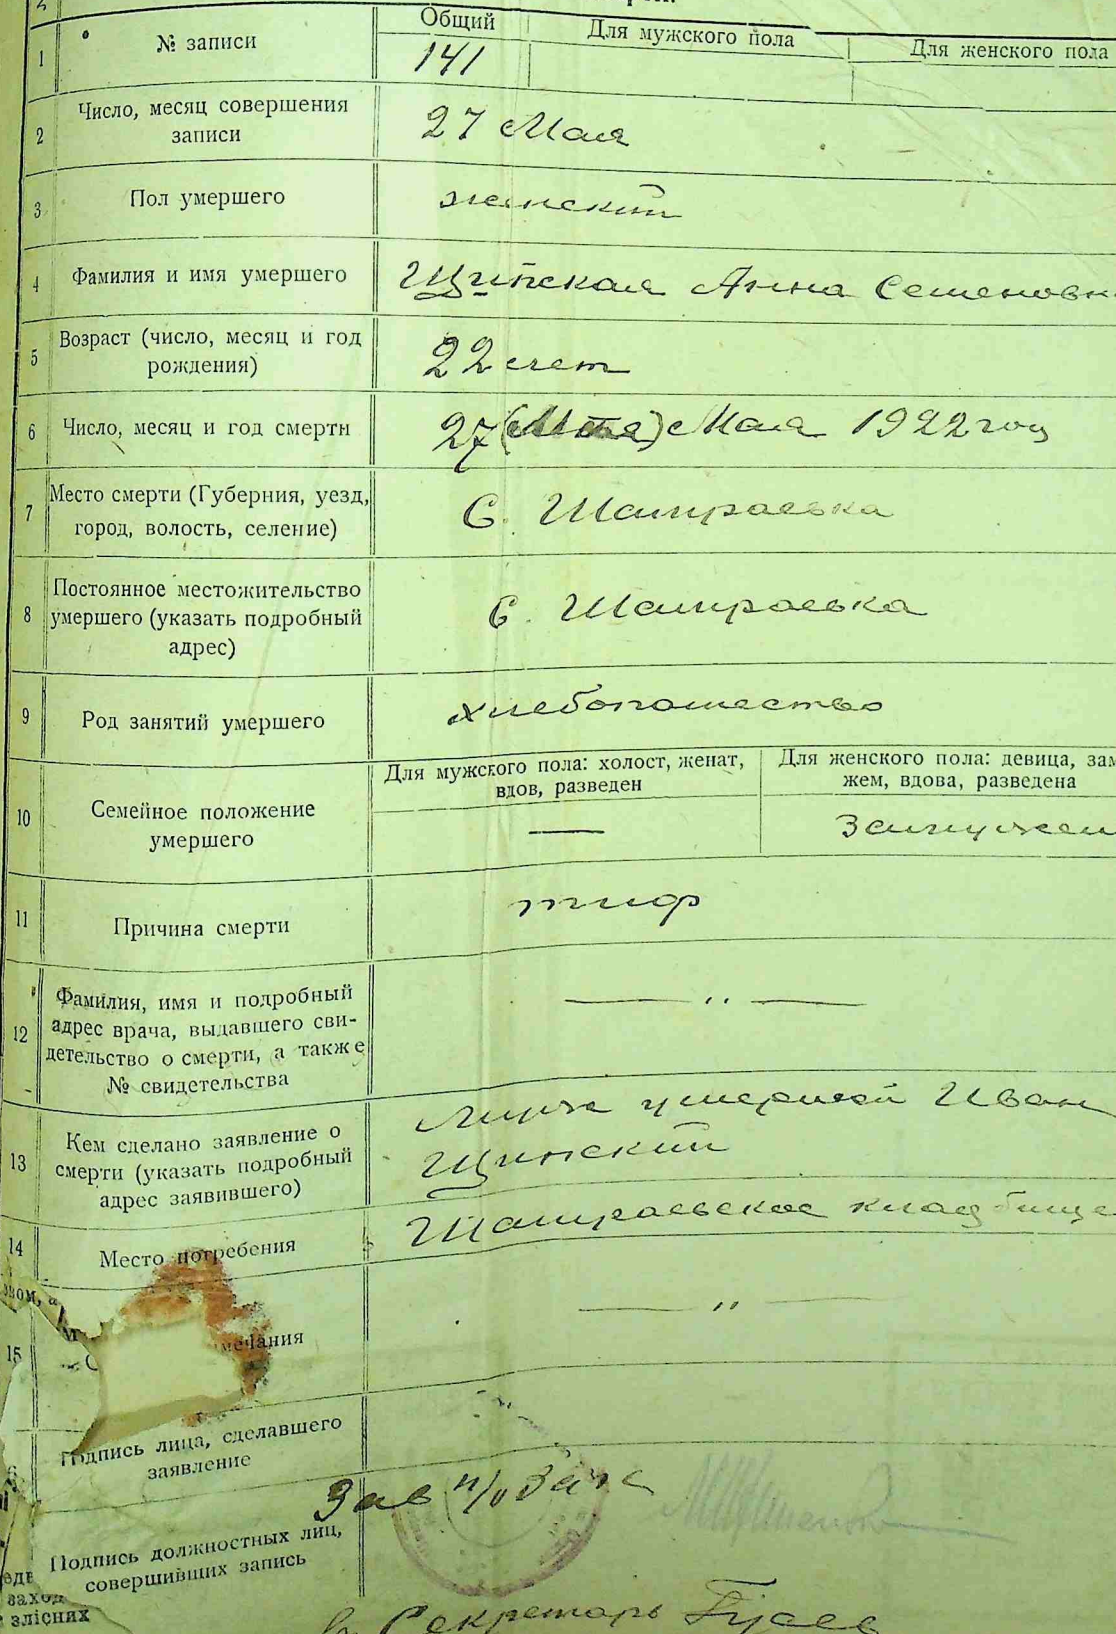 № записи
Общий
Для мужского пола
Для женского пола
1
141
Число, месяц совершения
записи
2
27 Мая
3
Пол умершего
женский
4
Фамилия и имя умершего
Щипская Анна Семеновн
5
Возраст (число, месяц и год
рождения)
22 лет
6
Число, месяц и год смерти
27 Мая 1922 году
7
Место смерти (Губерния, уезд,
город, волость, селение)
С. Шамраевка
8
Постоянное местожительство
умершего (указать подробный
адрес)
С. Шамраевка
9
Род занятий умершего
хлебопашество
10
Семейное положение
умершего
Для мужского пола: холост, женат,
вдов, разведен
Для женского пола: девица, зам
жем, вдова, разведена
—
Замужем
11
Причина смерти
тиф
12
Фамилия, имя и подробный
адрес врача, выдавшего сви-
детельство о смерти, а также
№ свидетельства
— „ —
13
Кем сделано заявление о
смерти (указать подробный
адрес заявившего)
умершей Иван
Щипский
14
Место погребения
Шамраевское кладбище
15
мечания
— „ —
Подпись лица, сделавшего
заявление
Подпись должностных лиц,
совершивших запись
Зав п/о Загс
Секретарь Гусев
ном, а
заход
злісних